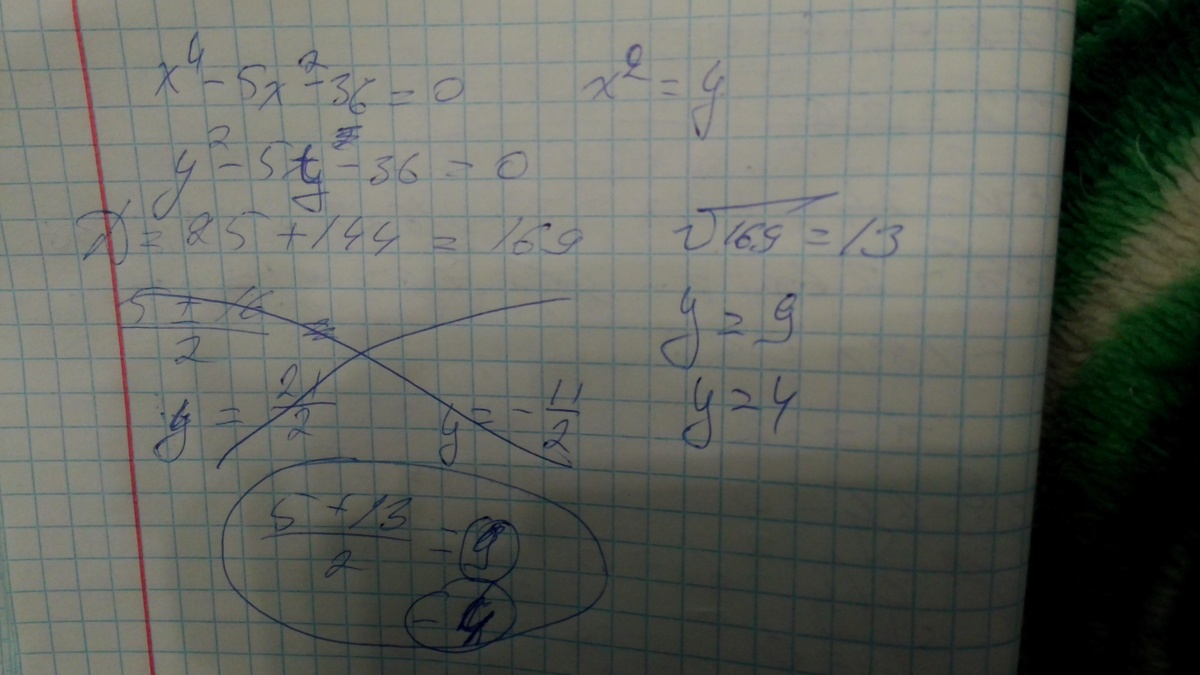 x⁴ - 5x² - 36 = 0 x² = y
y² - 5y - 36 = 0
D = 25 + 144 = 169 √169 = 13
5 ± 16 / 2 =
y = 21/2 y = - 11/2
y = 9
y = 4
5 + 13 / 2 = 9
- 4